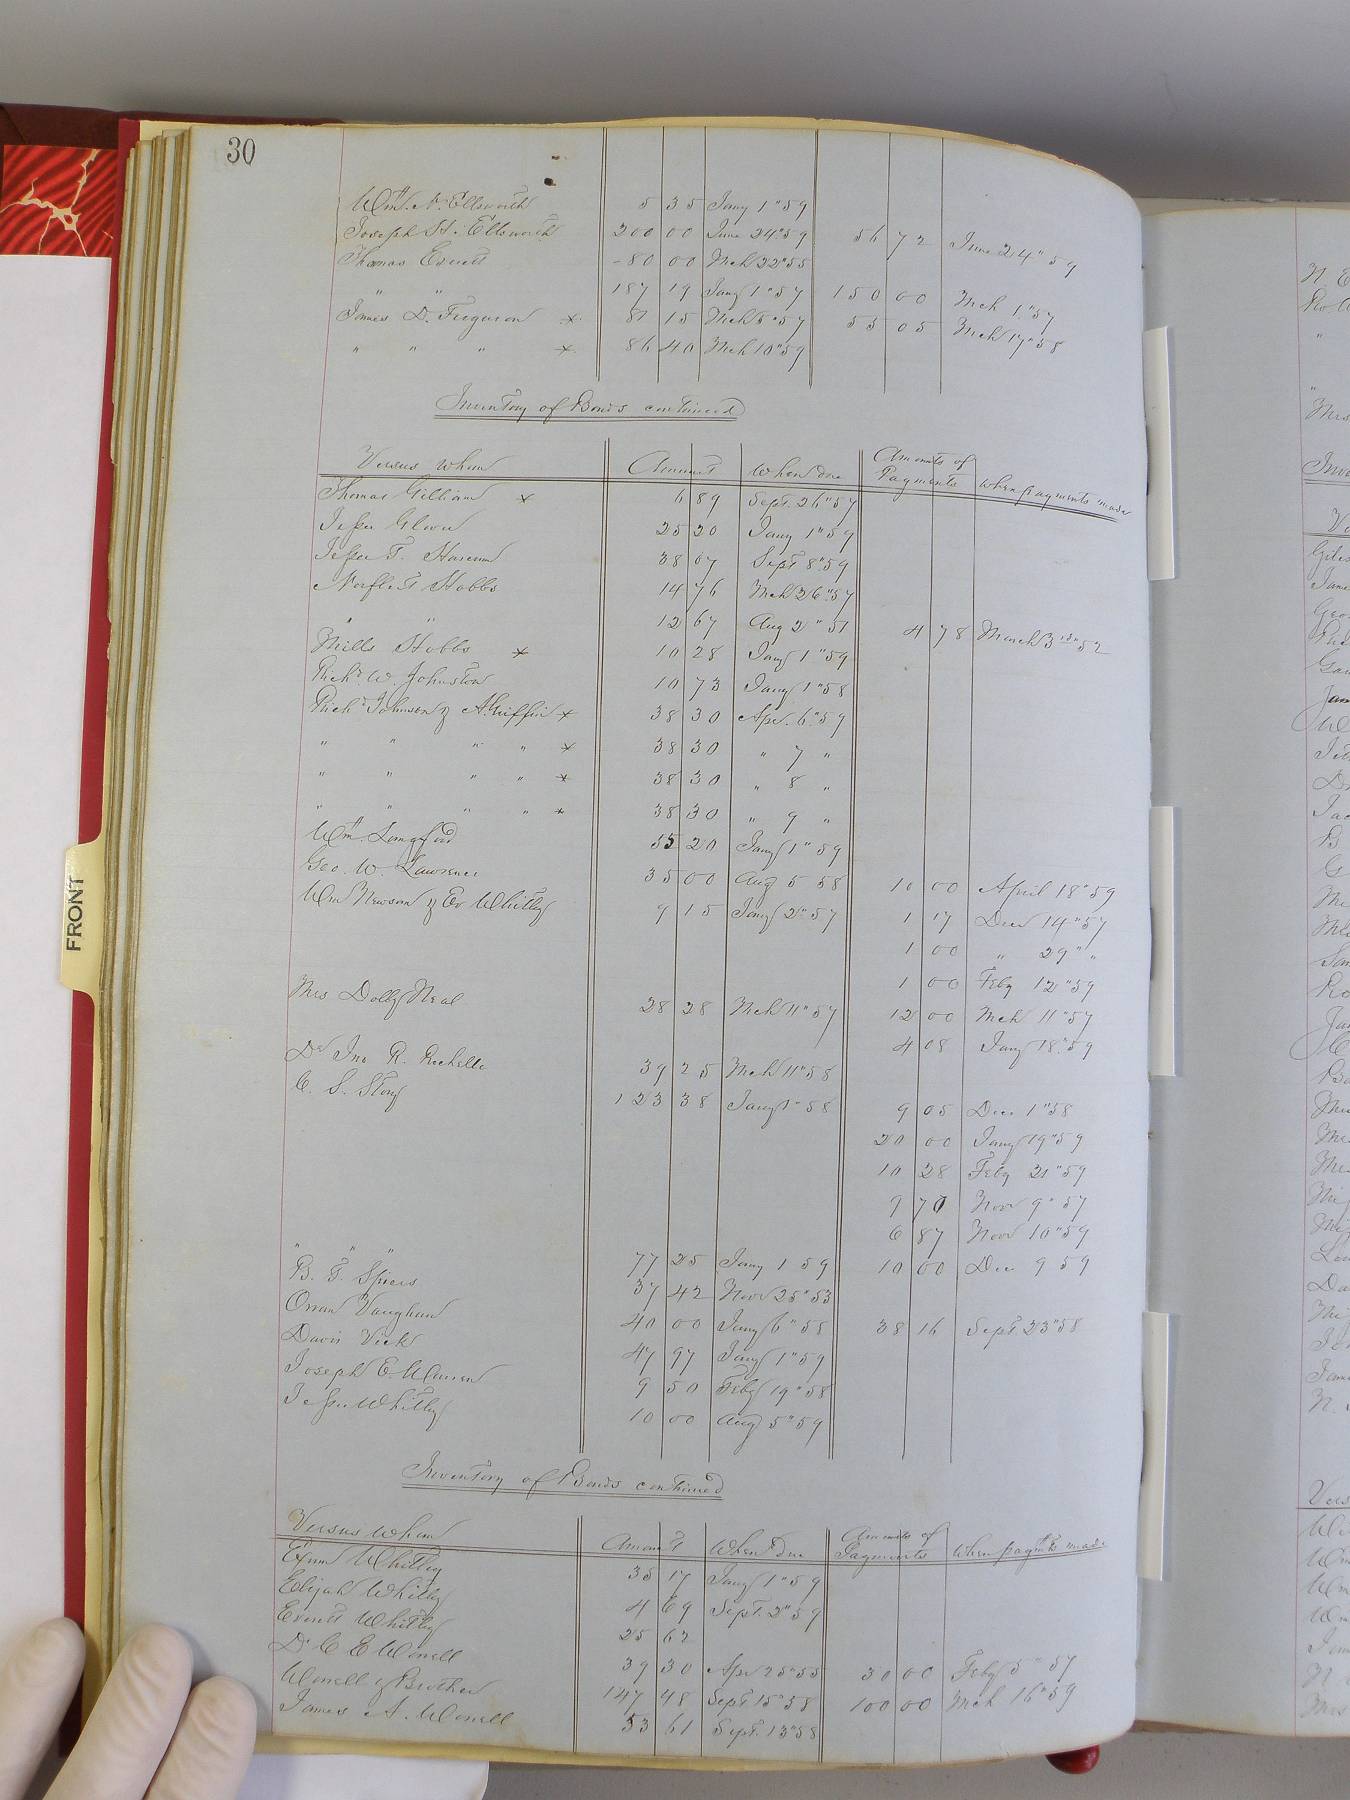 30
Wm. N. Ellsworth 5 35 Jany 1" 59
Joseph H. Ellsworth 200 00 June 24" 59 56 72 June 24" 59
Thomas Everett 80 00 Mch 22" 55
" " 187 19 Jany 1" 57 150 00 Mch 1" 57
James D. Ferguson x 81 15 Mch 5" 57 55 05 Mch 17" 58
" " " x 86 40 Mch 10" 59
Inventory of Bonds continued
Versus whom Amount When due Amounts of Payments When payments made
Thomas Gilliam x 6 89 Sept. 26" 57
Jesse Glover 25 20 Jany 1" 59
Jesse T. 38 07 Sept 8" 59
Norfleet Hobbs 14 76 Mch 26" 57
" " 12 67 Aug 2" 51 4 78 March 3rd 52
Mills Hobbs x 10 28 Jany 1" 59
Richd W. Johnston 10 73 Jany 1" 58
Richd Johnson & A. Griffin x 38 30 Apr. 6" 59
" " " " x 38 30 " 7 "
" " " " x 38 30 " 8 "
" " " " x 38 30 " 9 "
Wm. Langford 55 20 Jany 1" 59
Geo. W. Lawrence 35 00 Aug 5 58 10 00 April 18" 59
Wm Newsom & Ex Whitley 9 15 Jany 2" 57 1 17 Decr 14" 57
1 00 " 29" "
1 00 Feby 12" 59
Mrs Dolly Neal 28 28 Mch 11" 57 12 00 Mch 11" 57
4 08 Jany 18" 59
Dr Jno R. Rochelle 39 25 Mch 11" 58
C. S. Story 123 38 Jany 1" 58 9 05 Dec 1" 58
20 00 Jany 19" 59
10 28 Feby 21" 59
9 70 Novr 9" 57
6 87 Novr 10" 59
" " " 77 25 Jany 1 59 10 00 Dec 9 59
B. T. Spiers 37 42 Novr 25" 53
Orran Vaughan 40 00 Jany 6" 58 38 16 Sept 23" 58
Davis Vick 47 97 Jany 1" 59
Joseph E. Warren 9 50 Feby 19" 58
Jesse Whitley 10 00 Aug 5" 59
Inventory of Bonds continued
Versus whom Amount When due Amounts of Payments When paymts made
Exum Whitley 35 17 Jany 1" 59
Elijah Whitley 4 69 Sept. 2" 59
Everett Whitley 25 62
Dr C E Worrell 39 30 Apr 25" 55 30 00 Feby 5" 57
Worrell & Brother 147 48 Sept 15" 58 100 00 Mch 16" 59
James A. Worrell 53 61 Sept. 13" 58
FRONT